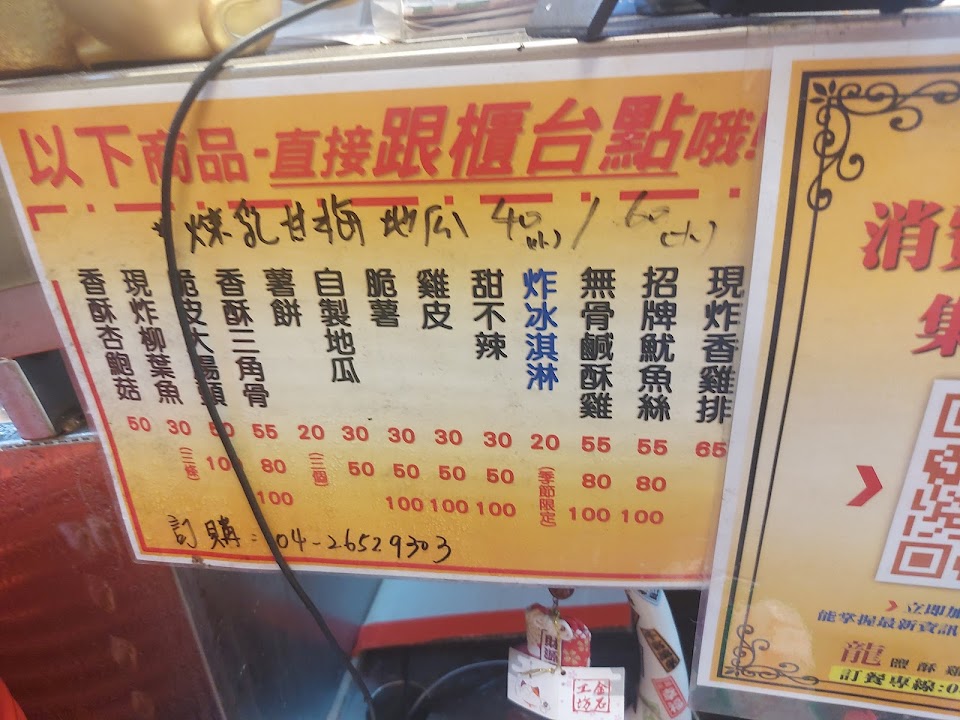 以下商品-直接跟櫃台點哦!
*煉乳甘梅地瓜 40(小)/60(大)
現炸香雞排 65
招牌魷魚絲 55 80 100
無骨鹹酥雞 55 80 100
炸冰淇淋 20 (季節限定)
甜不辣 30 50 100
雞皮 30 50 100
脆薯 30 50 100
自製地瓜 30 50
薯餅 20 (二個)
香酥三角骨 55 80 100
脆皮大腸頭 50 100
現炸柳葉魚 30 (三條)
香酥杏鮑菇 50
訂購:04-26529303
消費
集
立即加
能掌握最新資訊
龍 鹽酥雞
訂餐專線:0
財源
金石工坊